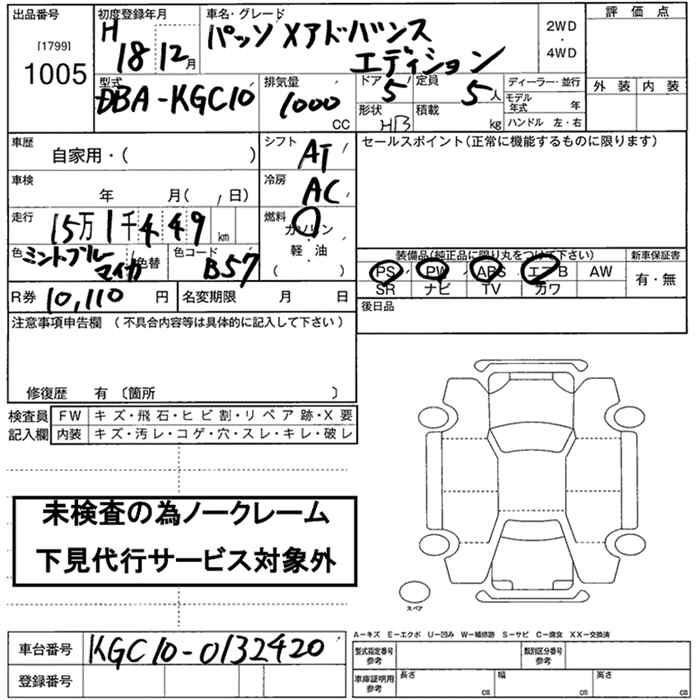 出品番号
[1799]
1005
初度登録年月
H
18 12月
車名・グレード
パッソ Xアドバンス
エディション
2WD
・
4WD
評価点
外装 内装
型式
DBA-KGC10
排気量
1000
CC
ドア
5
定員
5人
形状
HB
積載
kg
ディーラー・並行
モデル年式 年
ハンドル 左・右
車歴
自家用・( )
車検
年 月( / 日)
走行
15万1千449 km
色
ミントブルーマイカ
色替
色コード
B57
シフト
AT
冷房
AC
燃料
ガソリン
軽・油
( )
セールスポイント(正常に機能するものに限ります)
装備品(純正品に限り丸をつけて下さい)
PS PW ABS エアB AW
SR ナビ TV カワ
新車保証書
有・無
R券 10,110 円
名変期限 月 日
後日品
注意事項申告欄 (不具合内容等は具体的に記入して下さい)
修復歴 有 〔箇所 〕
検査員
記入欄
FW キズ・飛石・ヒビ割・リペア跡・X要
内装 キズ・汚レ・コゲ・穴・スレ・キレ・破レ
未検査の為ノークレーム
下見代行サービス対象外
スペア
A-キズ E-エクボ U-凹み W-補修跡 S-サビ C-腐食 XX-交換済
車台番号 KGC10-0132420
登録番号
型式指定番号
参考
類別区分番号
参考
車庫証明用
参考
長さ cm
幅 cm
高さ cm